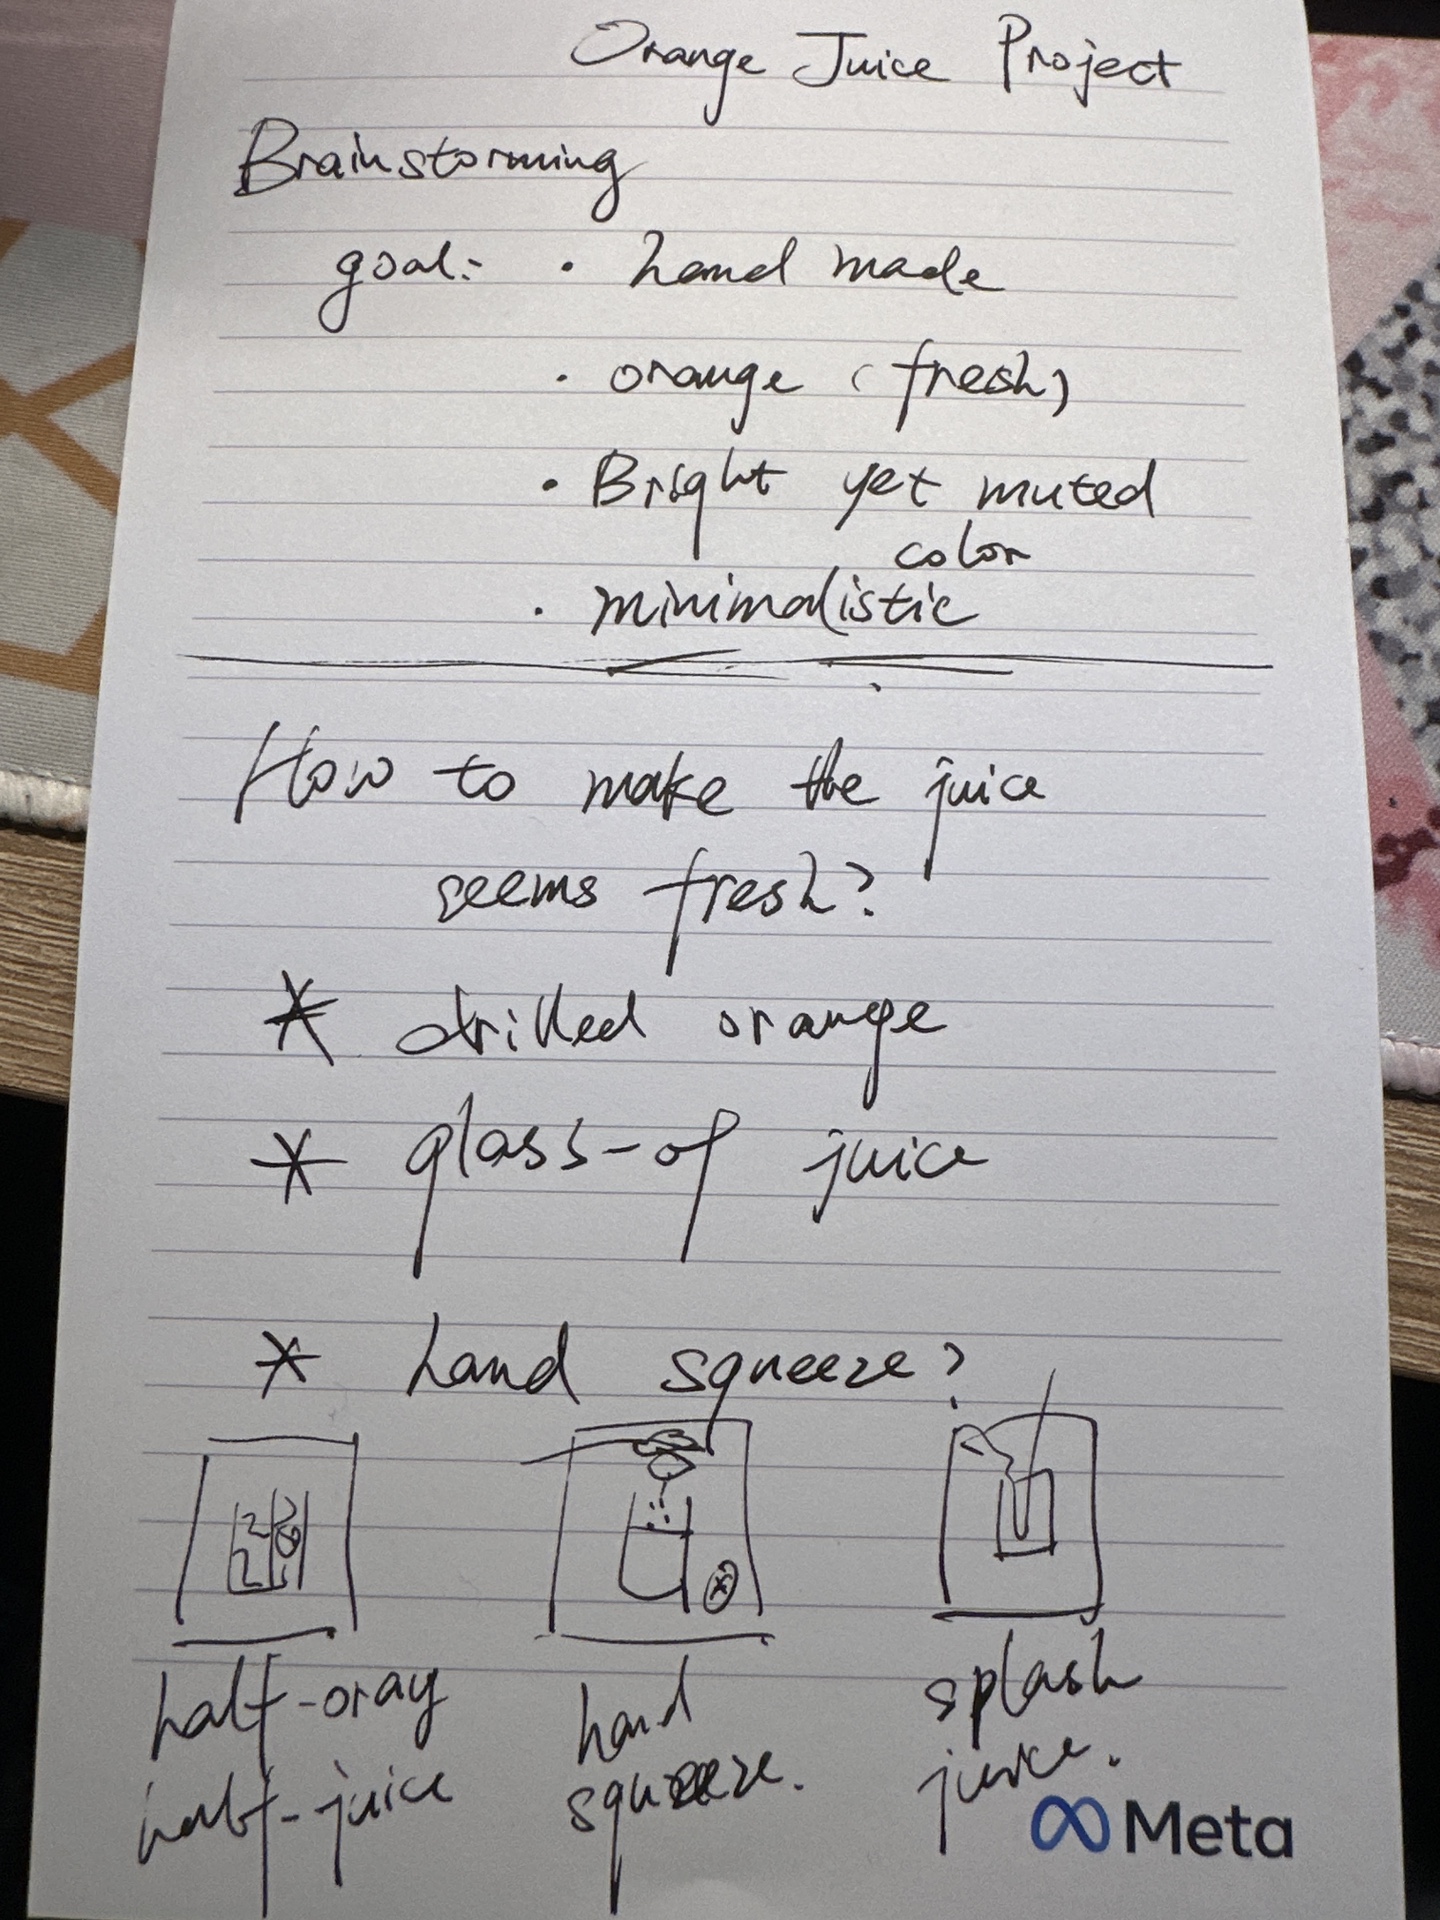 Orange Juice Project
Brainstorming
goal: • hand made
• orange (fresh)
• Bright yet muted
color
• minimalistic
How to make the juice
seems fresh?
* drilled orange
* glass-of juice
* hand squeeze?
half-orang
half-juice
hand
squeeze.
splash
juice.
Meta